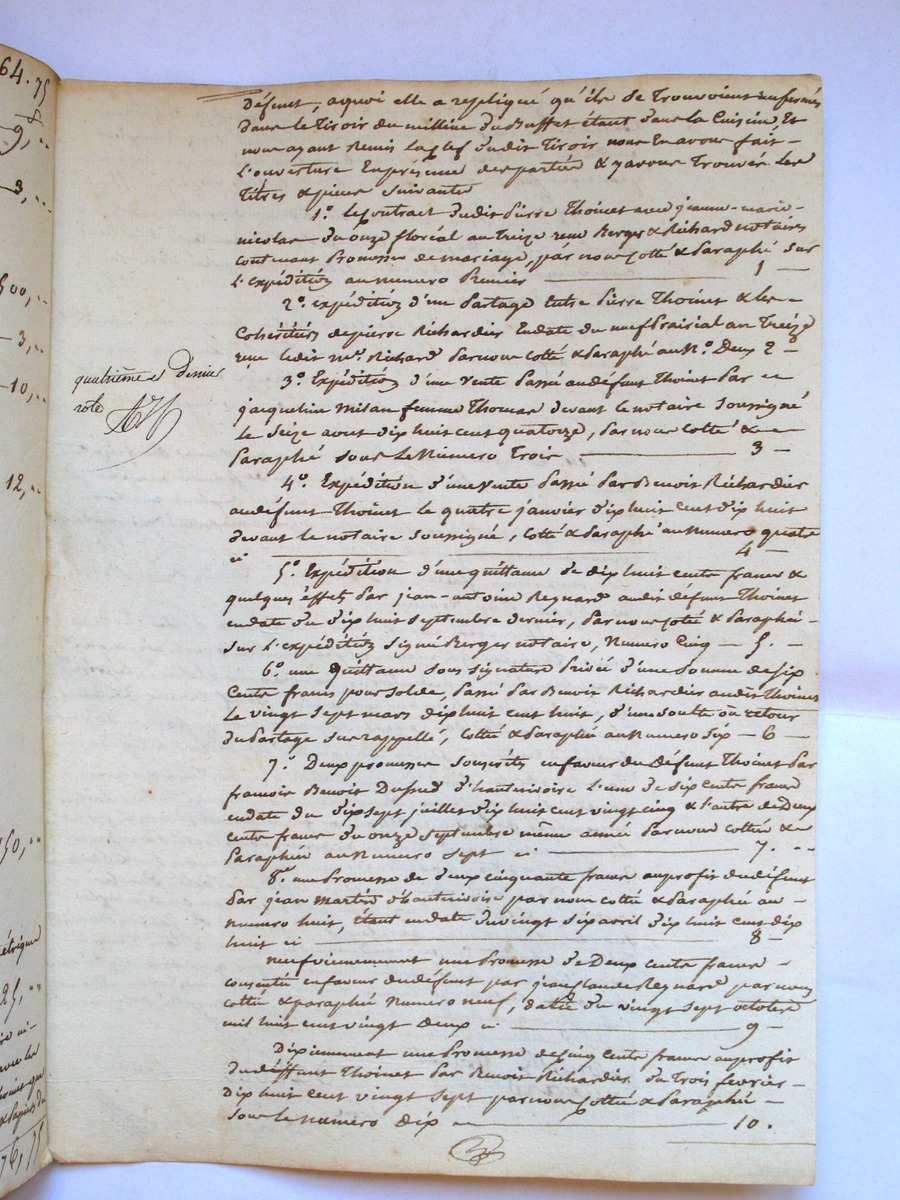 64.75
9,8..
3,..
500,..
3,..
10,..
12,..
150,..
25,..
76,75
quatrième et Dernier
role
Défunt, aquoi elle a repliqué qu'ils se Trouvoient enfermés
Dans le Tiroir du millieu du Buffet étant dans la Cuisine Et
nous ayant Remis la clef dudit Tiroir nous En avons fait
L'ouverture En présence des parties & y avons Trouvés Les
Titres & pièces suivantes
1.º le contract dudit Pierre Thoinet avec jeanne-marie
nicolas du onze floréal an treize reçu Berger & Richard notaires
contenant Promesses de mariage, par nous Cotté & Paraphé sur
L'expédition au numero Premier 1
2.º expédition d'un Partage Entre Pierre Thoinet & les
Cohéritiers de pierre Richardier En date du neuf Prairial an Treize
reçu ledit mᵉ. Richard Par nous Cotté & Paraphé au Nº. Deux 2
3.º Expédition d'une vente Passé au défunt Thoinet Par
jacqueline milan femme Thomas devant le notaire soussigné
Le seize aout dix huit cent quatorze, Par nous Cotté &
Paraphé sous Le Numero Trois 3
4.º Expédition d'une Vente Passé Par Benoit Richardier
au défunt Thoinet le quatre janvier dix huit cent dix huit
devant le notaire soussigné, Cotté & Paraphé au Numero quatre
ci 4
5.º Expédition d'une quittance de dix huit cents francs &
quelques effets Par jean-antoine Reynard audit défunt Thoinet
en date du dix huit septembre dernier, Par nous Cotté & Paraphé
sur L'expédition signé Berger notaire, Numero Cinq 5.
6.º une Quittance sous signature Privée d'une somme de six
Cents francs pour solde, Passé Par Benoit Richardier audit Thoinet
Le vingt sept mars dix huit cent huit, d'une soulte ou retour
du Partage sus rappellé, Cotté & Paraphé au Numero Six 6
7.º Deux promesses souscrites en faveur du Défunt Thoinet Par
francois Benoit d'hauterivoire L'une de six cents francs
en date du dix sept juillet dix huit cent vingt cinq & l'autre de Deux
cents francs du onze septembre même année Par nous cottées &
Paraphées au Numero sept ci 7.
8.º une Promesse de deux cinquante francs au profit du défunt
Par jean martin d'hauterivoire par nous cotté & Paraphé au
numero huit, étant en date du vingt six avril dix huit cent dix
huit ci 8
neufviemement une Promesse de Deux cents francs
consentie en faveur du défunt par jean claude Reynard par nous
cotté & paraphé Numero neuf, datée du vingt sept octobre
mil huit cent vingt deux ci 9
Dixiemement une Promesse de cinq cents francs au profit
du déffunt Thoinet Par Benoit Richardier du Trois fevrier
dix huit cent vingt sept par nous Cotté & Paraphé
sous le numéro dix 10.